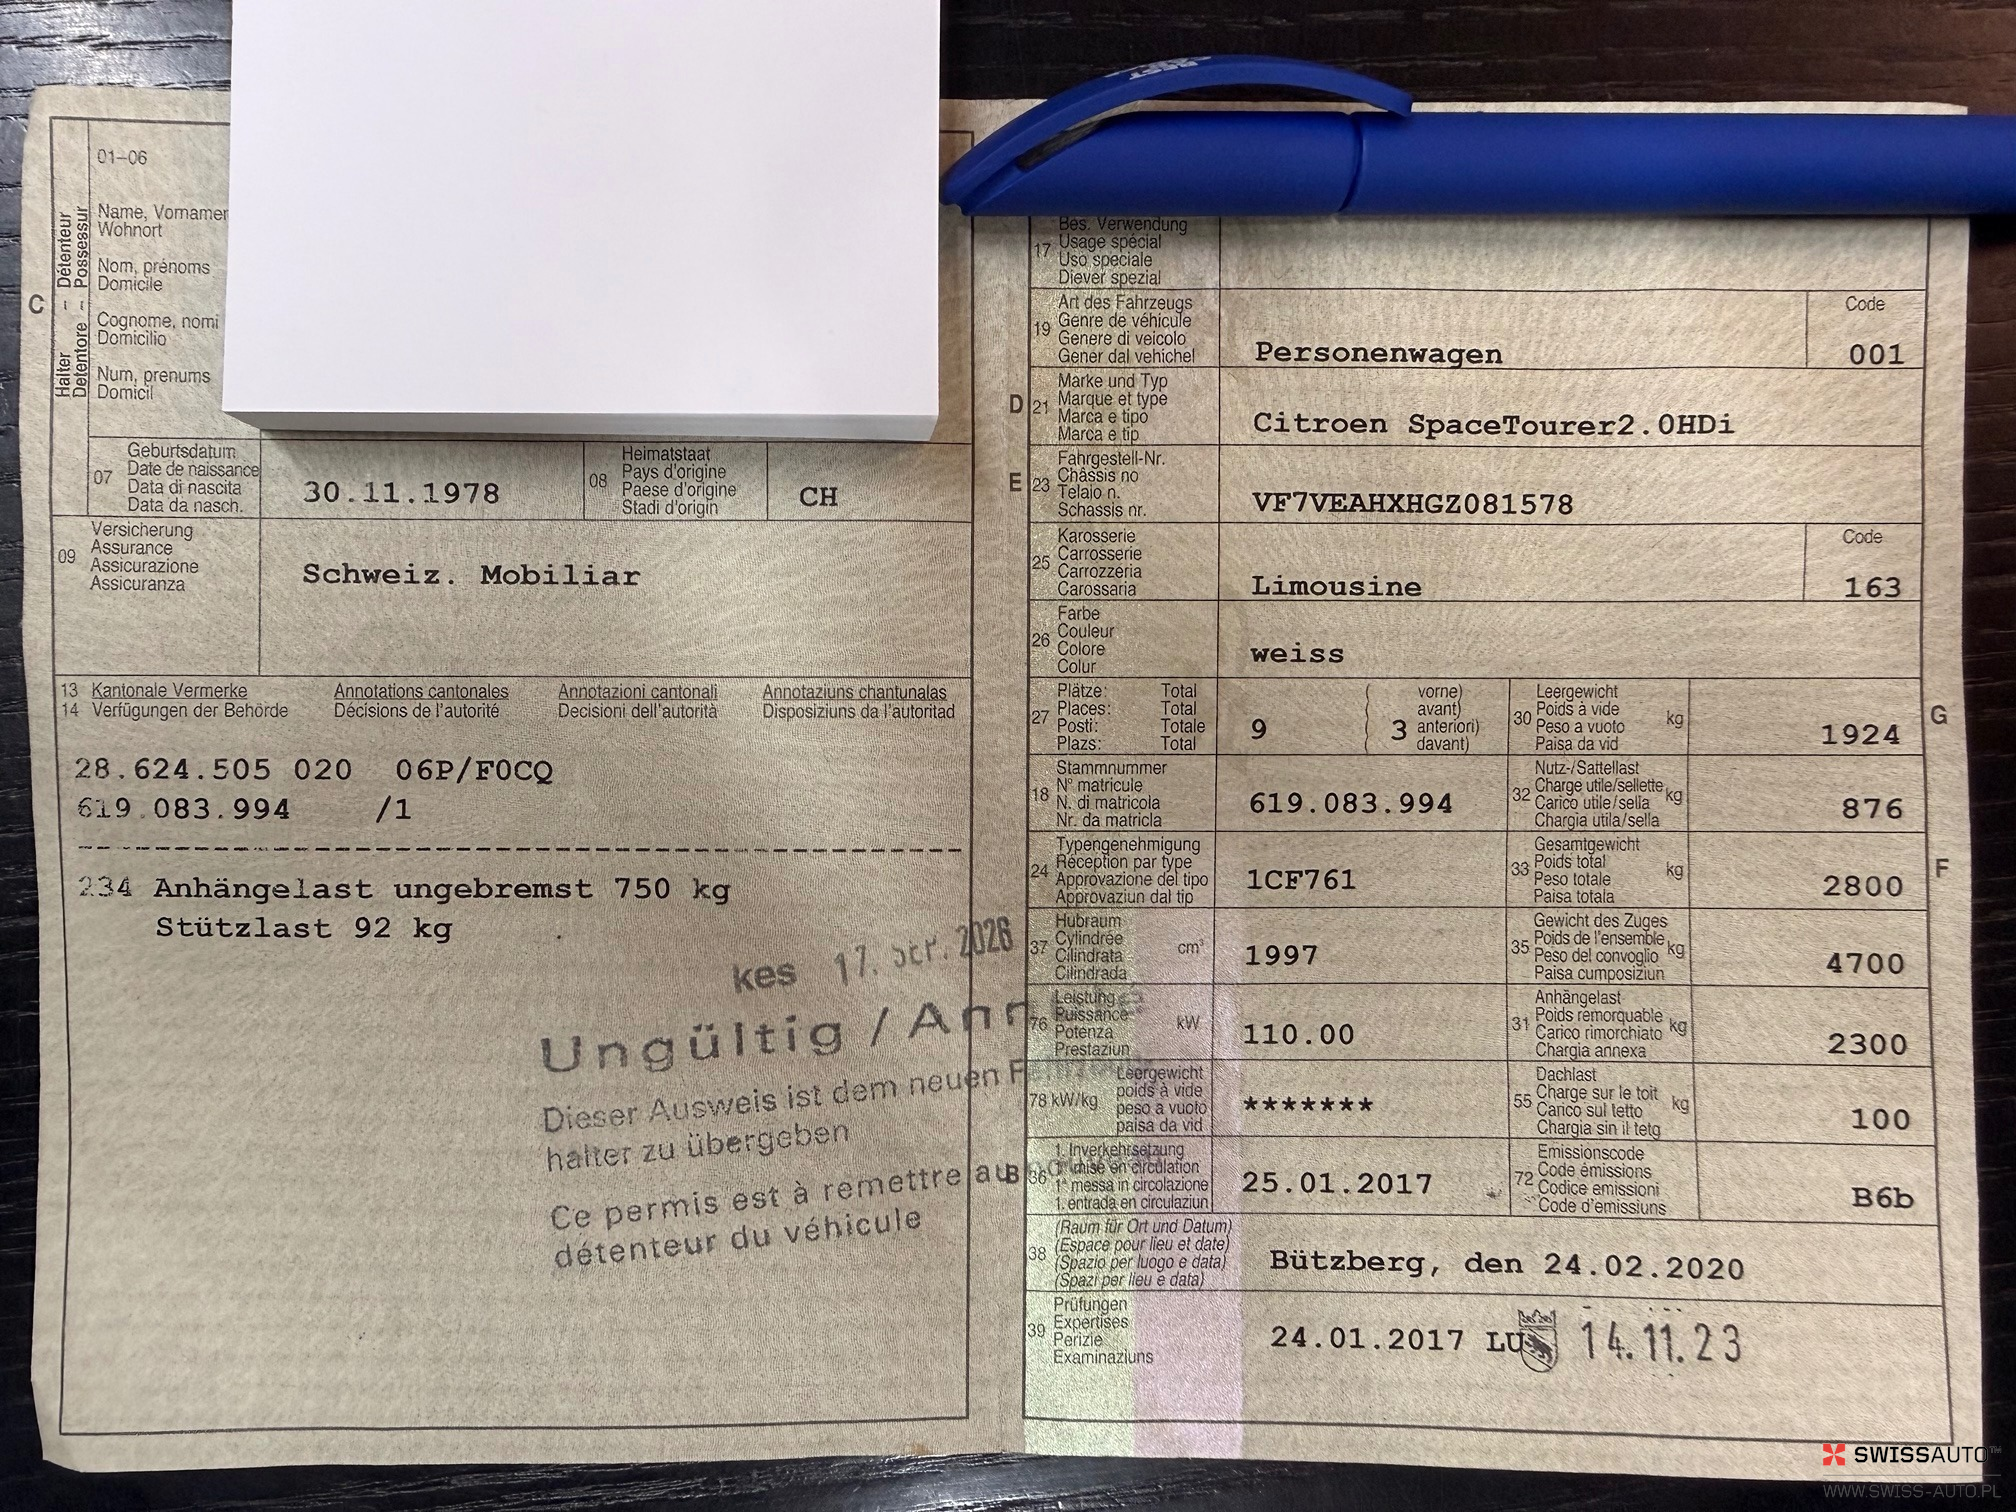 01–06
Halter – Détenteur
Detentore – Possessur
C
Name, Vornamen
Wohnort
Nom, prénoms
Domicile
Cognome, nomi
Domicilio
Num, prenums
Domicil
07
Geburtsdatum
Date de naissance
Data di nascita
Data da nasch.
30.11.1978
08
Heimatstaat
Pays d'origine
Paese d'origine
Stadi d'origin
CH
09
Versicherung
Assurance
Assicurazione
Assicuranza
Schweiz. Mobiliar
13 Kantonale Vermerke Annotations cantonales Annotazioni cantonali Annotaziuns chantunalas
14 Verfügungen der Behörde Décisions de l'autorité Decisioni dell'autorità Disposiziuns da l'autoritad
28.624.505 020 06P/F0CQ
619.083.994 /1
234 Anhängelast ungebremst 750 kg
Stützlast 92 kg
kes 17. 2026
Ungültig / Ann
Dieser Ausweis ist dem neuen
halter zu übergeben
Ce permis est à remettre au
détenteur du véhicule
17
Bes. Verwendung
Usage spécial
Uso speciale
Diever spezial
19
Art des Fahrzeugs
Genre de véhicule
Genere di veicolo
Gener dal vehichel
Personenwagen
Code
001
D
21
Marke und Typ
Marque et type
Marca e tipo
Marca e tip
Citroen SpaceTourer2.0HDi
E
23
Fahrgestell-Nr.
Châssis no
Telaio n.
Schassis nr.
VF7VEAHXHGZ081578
25
Karosserie
Carrosserie
Carrozzeria
Carossaria
Limousine
Code
163
26
Farbe
Couleur
Colore
Colur
weiss
27
Plätze: Total
Places: Total
Posti: Totale
Plazs: Total
9
( vorne)
( avant)
( 3 anteriori)
( davant)
30
Leergewicht
Poids à vide
Peso a vuoto
Paisa da vid
kg
1924
G
18
Stammnummer
N° matricule
N. di matricola
Nr. da matricla
619.083.994
32
Nutz-/Sattellast
Charge utile/sellette
Carico utile/sella
Chargia utila/sella
kg
876
24
Typengenehmigung
Réception par type
Approvazione del tipo
Approvaziun dal tip
1CF761
33
Gesamtgewicht
Poids total
Peso totale
Paisa totala
kg
2800
F
37
Hubraum
Cylindrée
Cilindrata
Cilindrada
cm³
1997
35
Gewicht des Zuges
Poids de l'ensemble
Peso del convoglio
Paisa cumposiziun
kg
4700
76
Leistung
Puissance
Potenza
Prestaziun
kW
110.00
31
Anhängelast
Poids remorquable
Carico rimorchiato
Chargia annexa
kg
2300
78 kW/kg
Leergewicht
poids à vide
peso a vuoto
paisa da vid
*******
55
Dachlast
Charge sur le toit
Carico sul tetto
Chargia sin il tetg
kg
100
B
36
1. Inverkehrsetzung
1re mise en circulation
1a messa in circolazione
1. entrada en circulaziun
25.01.2017
72
Emissionscode
Code émissions
Codice emissioni
Code d'emissiuns
B6b
38
(Raum für Ort und Datum)
(Espace pour lieu et date)
(Spazio per luogo e data)
(Spazi per lieu e data)
Bützberg, den 24.02.2020
39
Prüfungen
Expertises
Perizie
Examinaziuns
24.01.2017 LU 14.11.23
SWISSAUTO™
WWW.SWISS-AUTO.PL